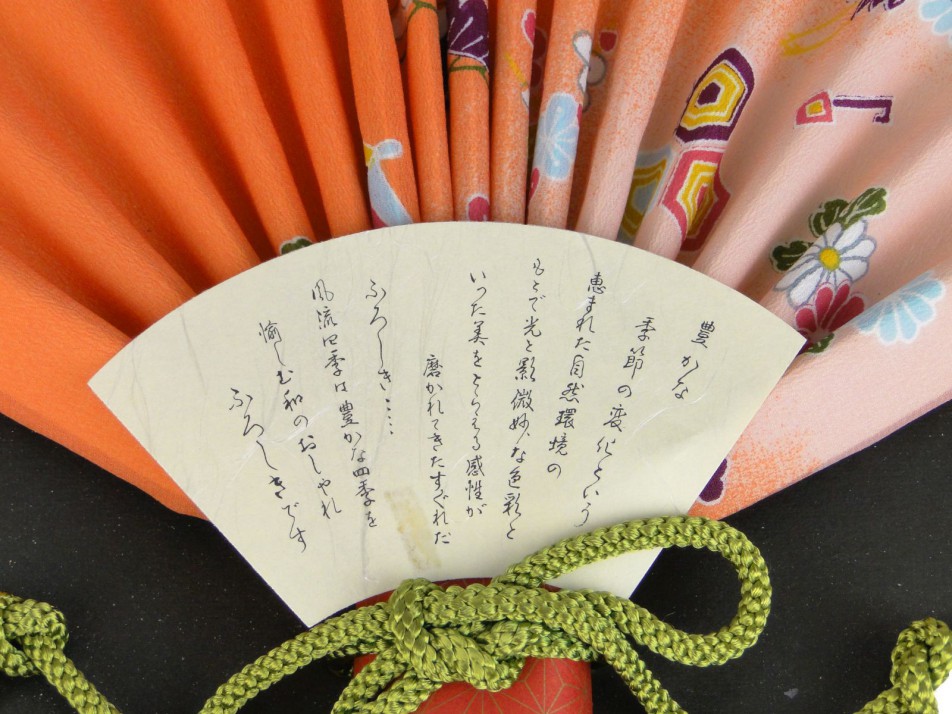 豊かな
季節の変化という
恵まれた自然環境の
もとで光と影微妙な色彩と
いった美をとらえる感性が
磨かれてきたすぐれた
ふろしき……
風流四季は豊かな四季を
愉しむ和のおしゃれ
ふろしきです